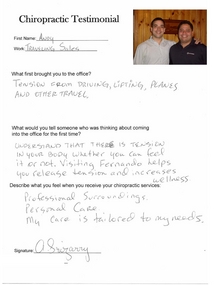 Chiropractic Testimonial
First Name: Andy
Work: Traveling Sales
What first brought you to the office?
TENSION FROM DRIVING, LIFTING, PLANES
AND OTHER TRAVEL.
What would you tell someone who was thinking about coming
into the office for the first time?
UNDERSTAND THAT THERE IS TENSION
IN YOUR BODY WHETHER YOU CAN FEEL
IT OR NOT. VISITING FERNANDO HELPS
YOU RELEASE TENSION AND INCREASES
WELLNESS.
Describe what you feel when you receive your chiropractic services:
Professional Surroundings.
Personal Care.
My care is tailored to my needs.
Signature: